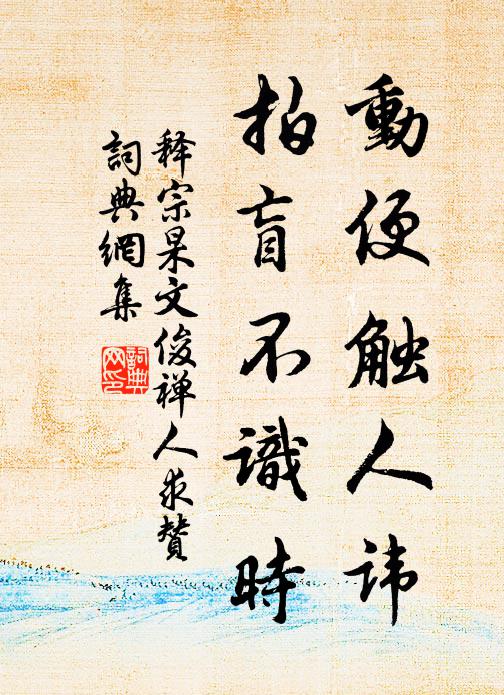 動便触人讳
拍盲不識時
释宗杲文俊禅人求赞
詞典網集
詞典
网印